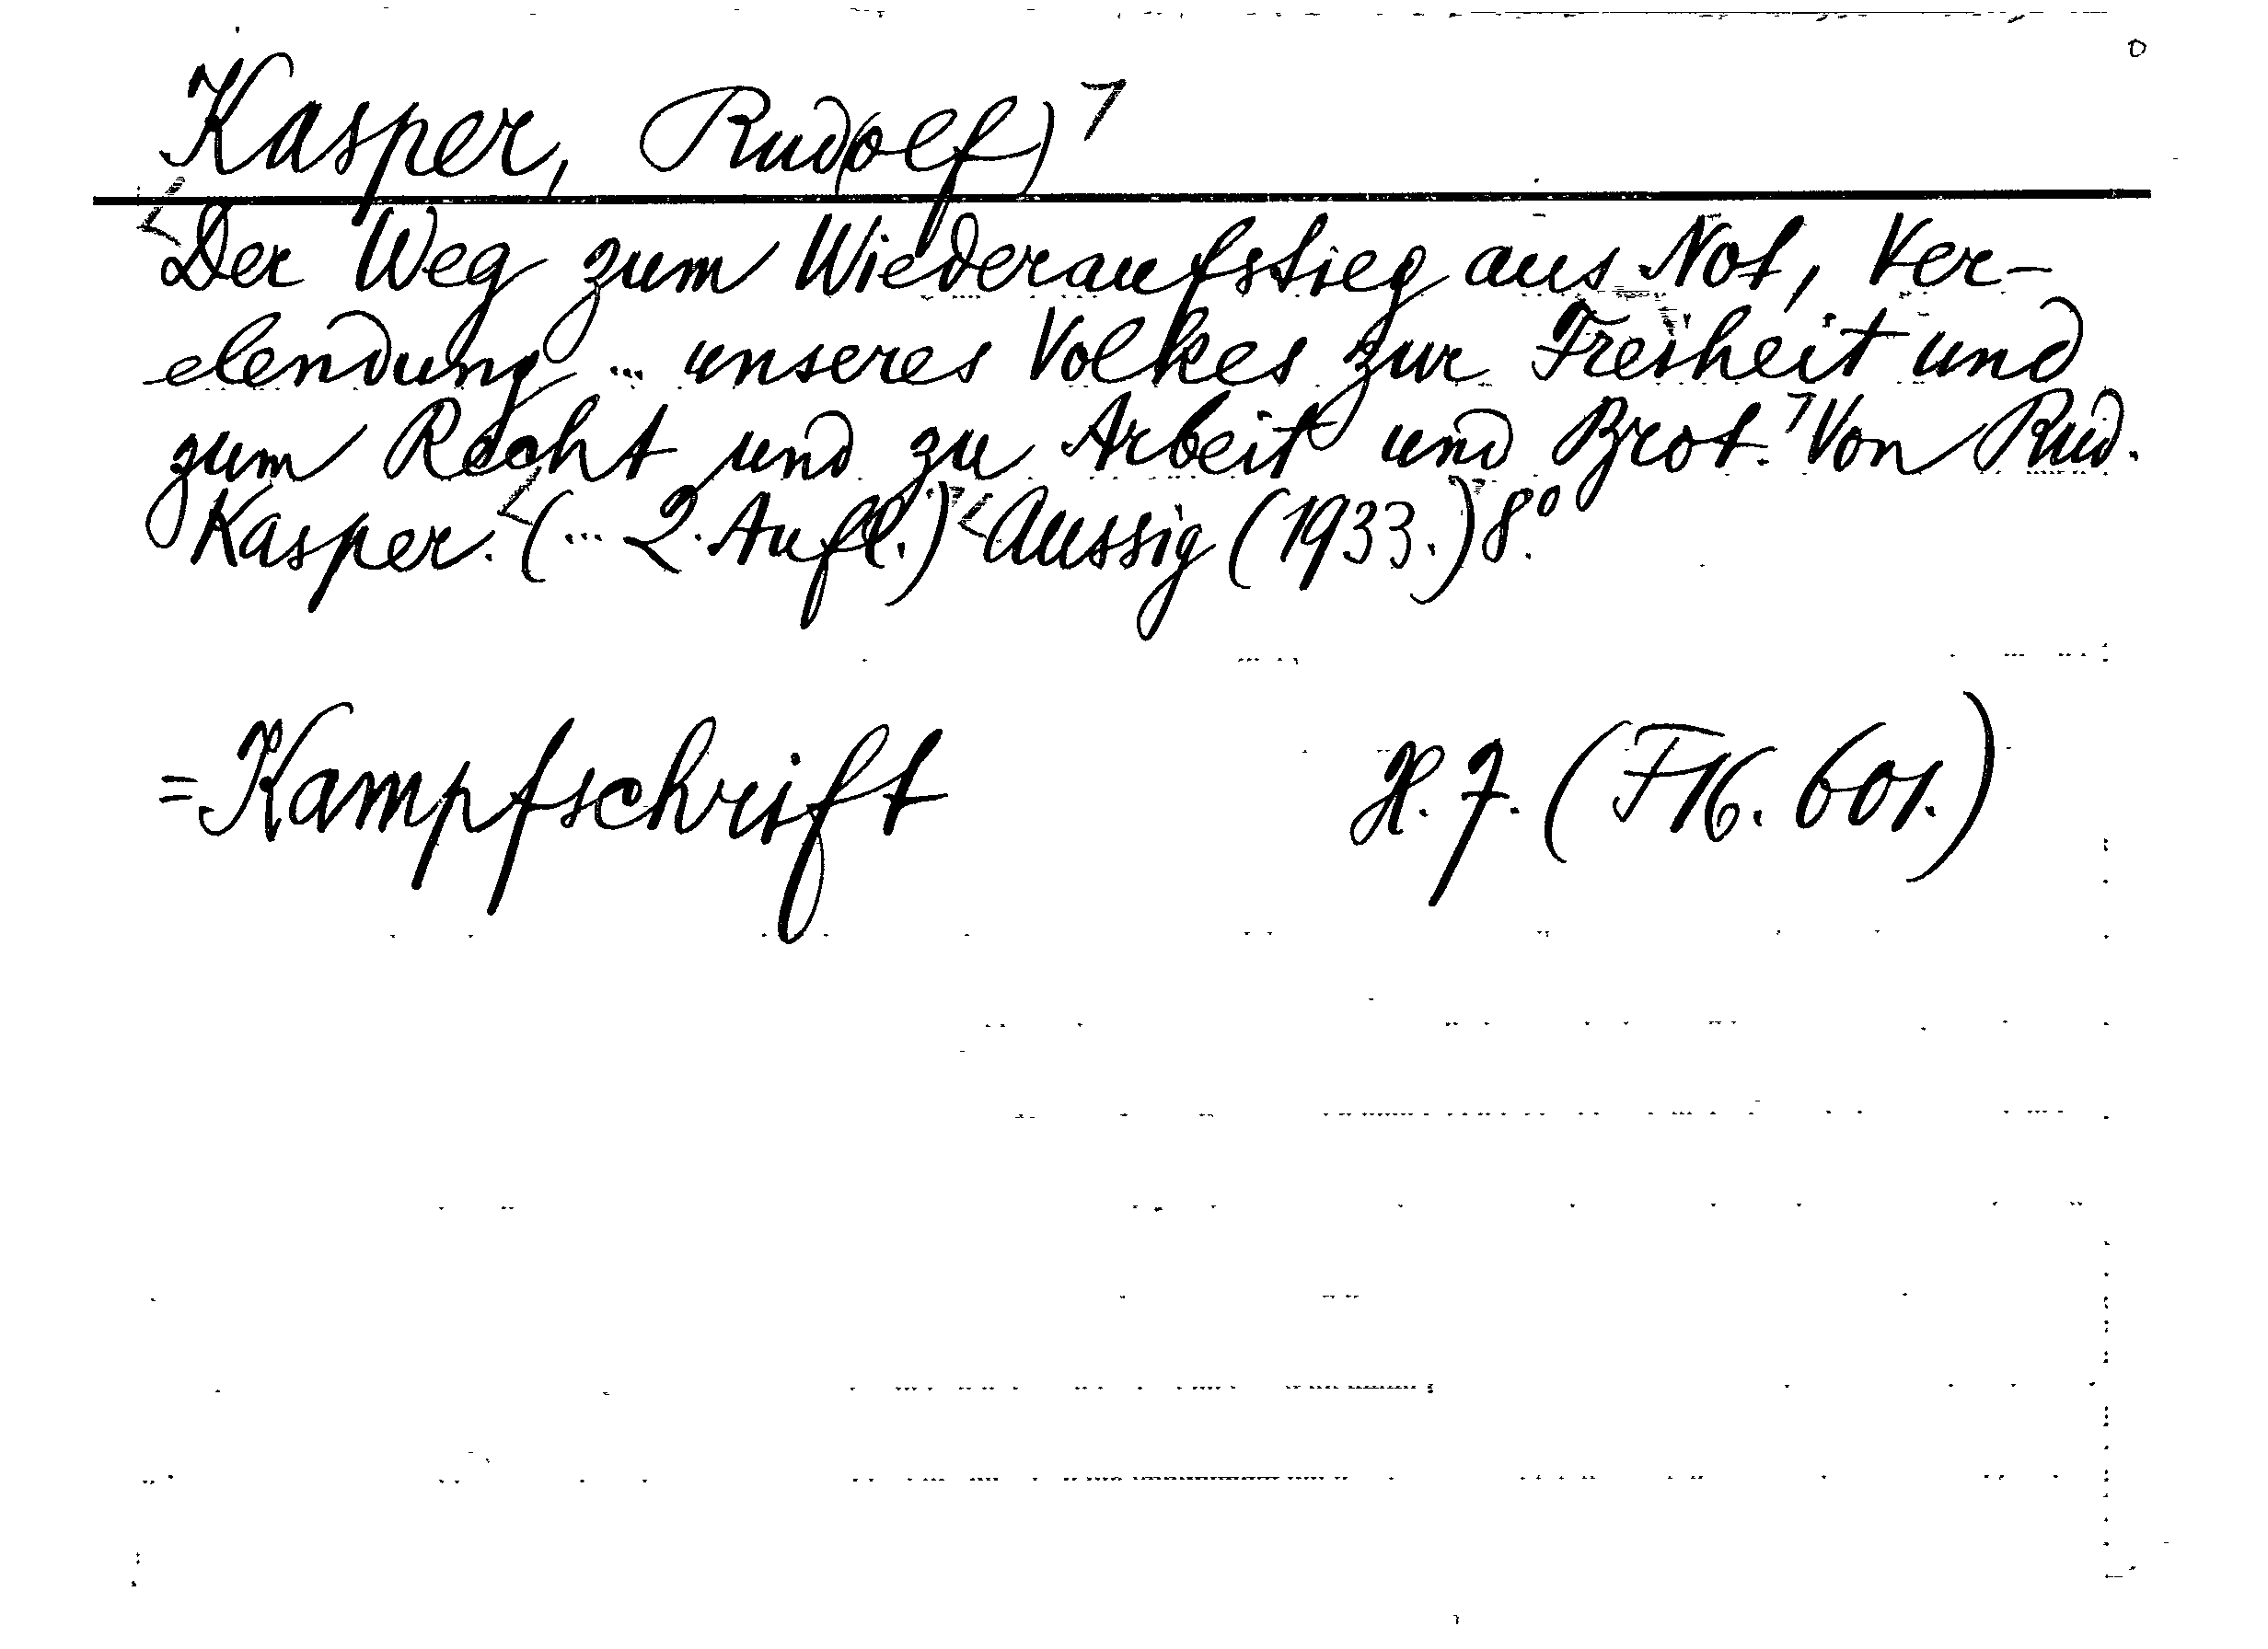 Kasper, Rud(olf)
Der Weg zum Wiederaufstieg aus Not, Ver-
elendung ... unseres Volkes zur Freiheit und
zum Recht und zu Arbeit und Brot. Von Rud.
Kasper. (... 2. Aufl.) Aussig (1933.) 8°.
= Kampfschrift
H. 7. (FK. 601.)